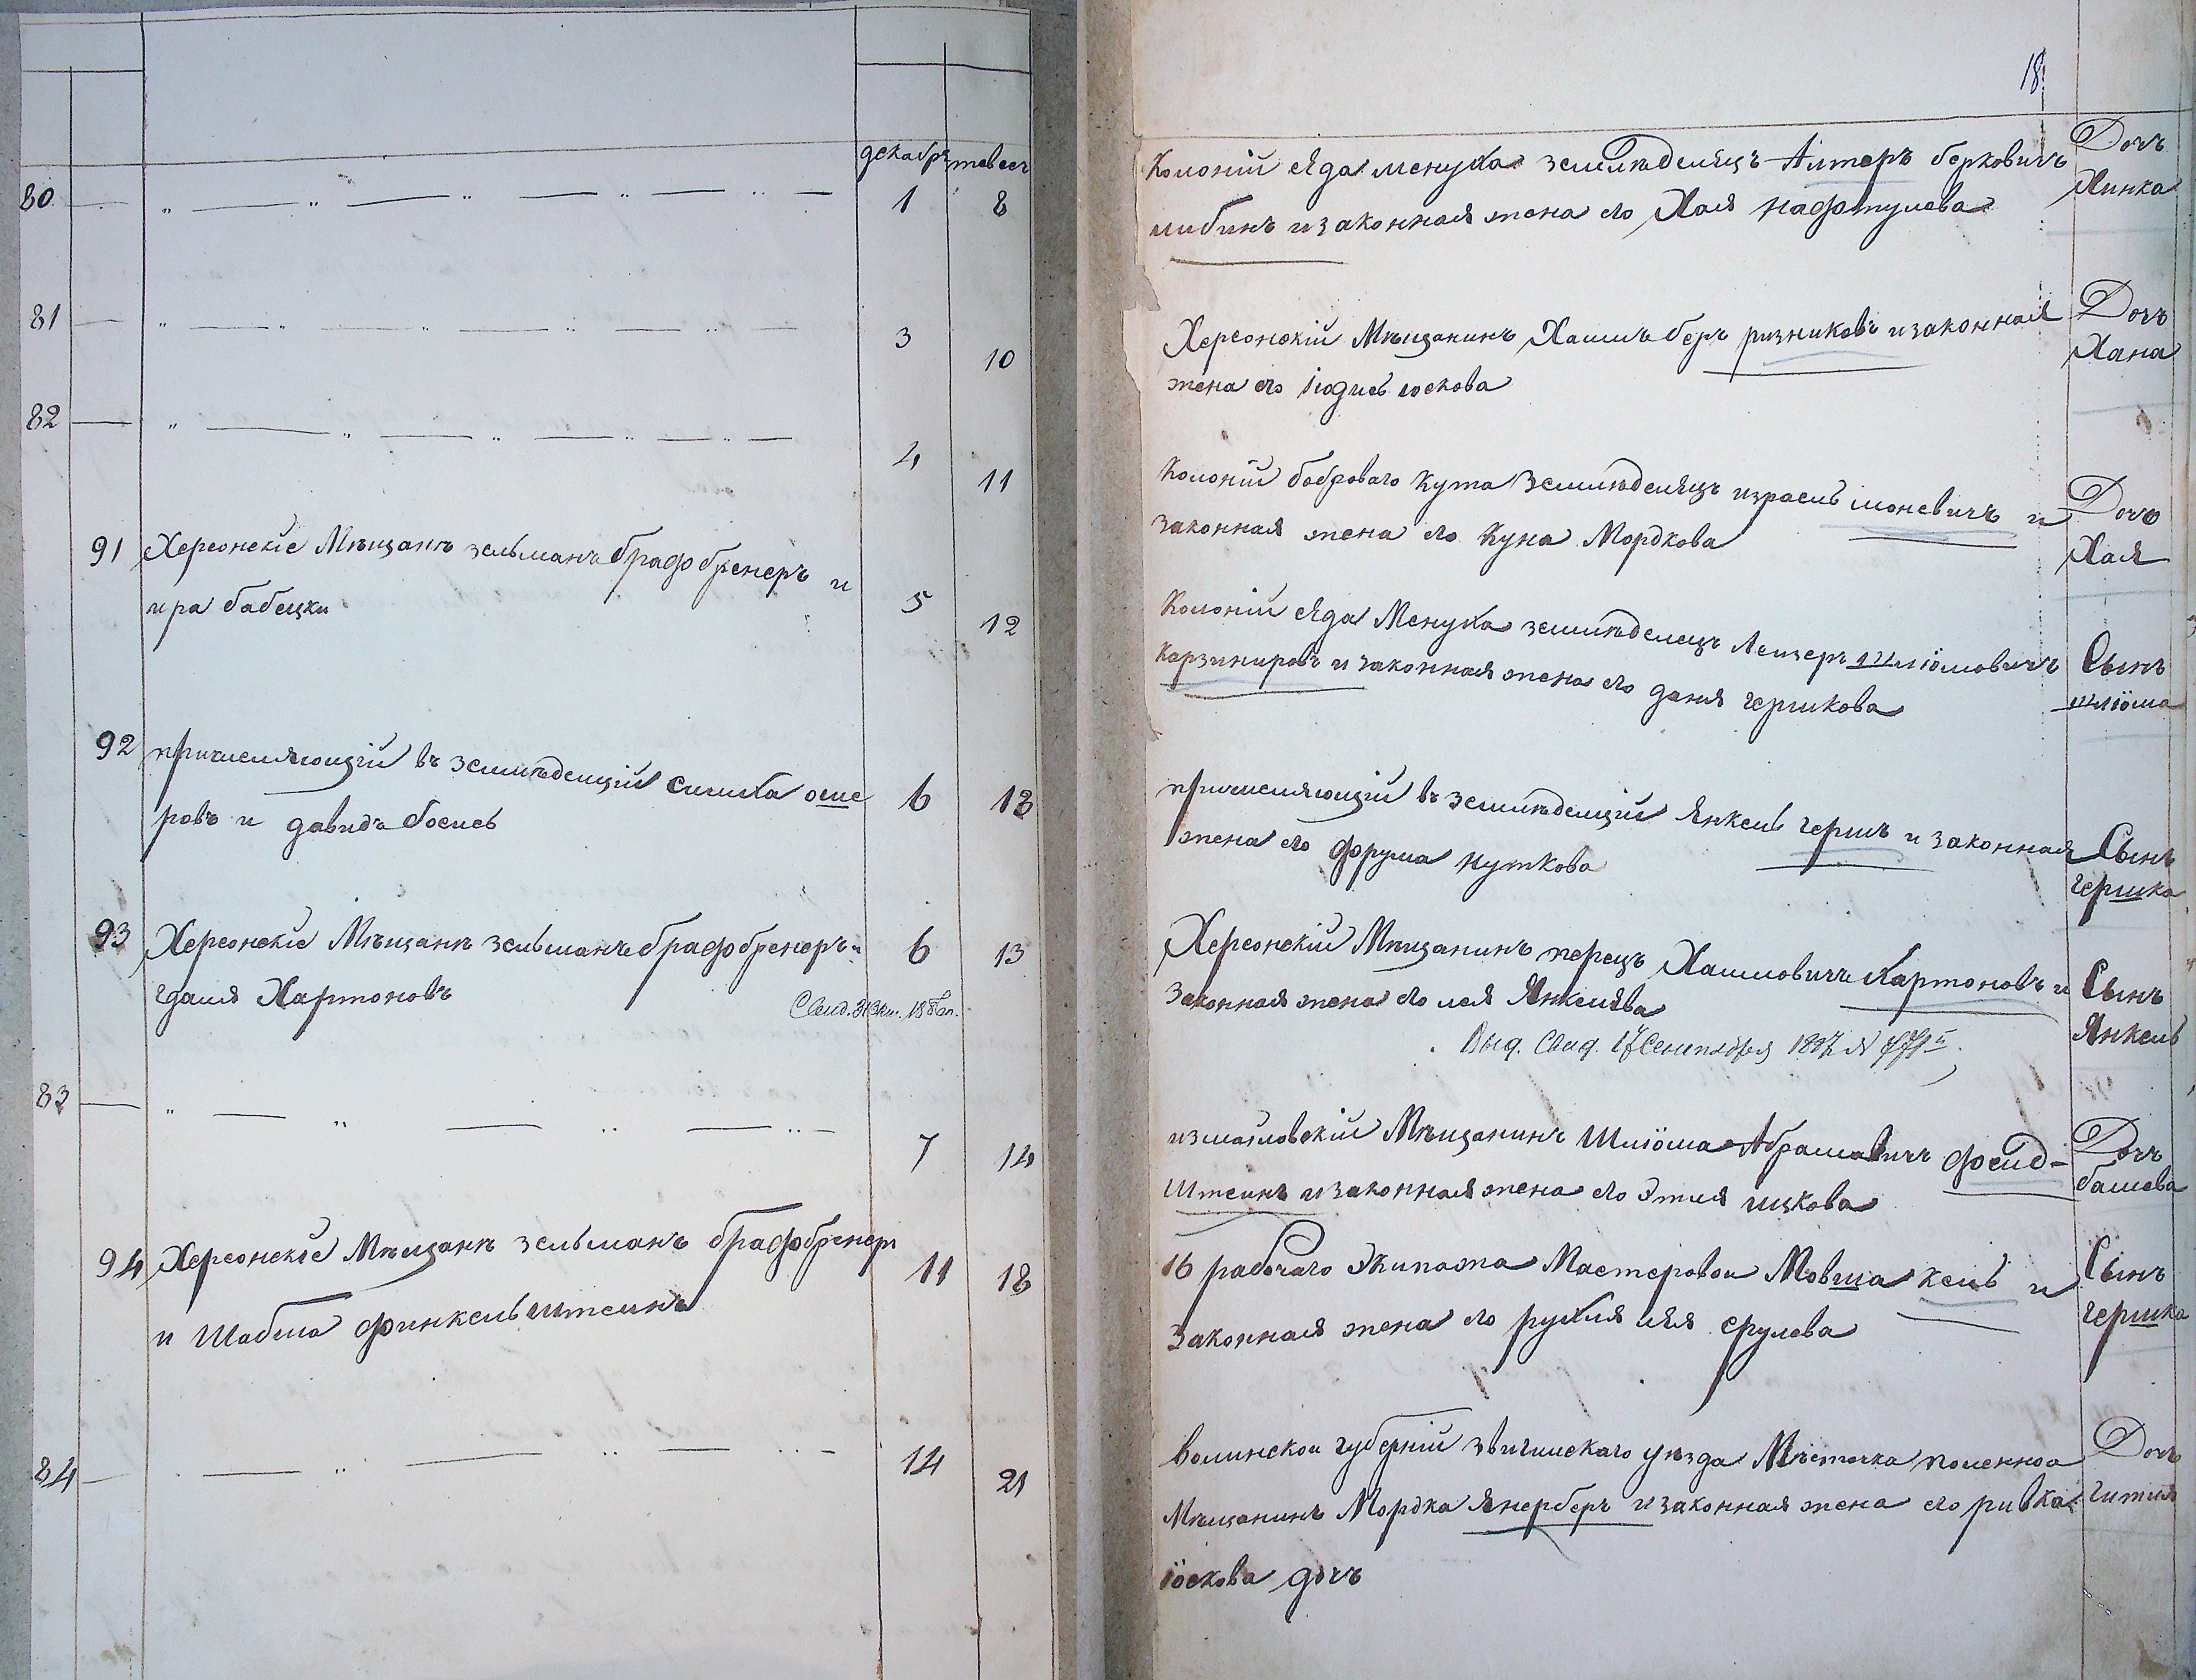 декабръ тевесъ
80 — „ — „ — „ — „ — „ — 1 8
81 — „ — „ — „ — „ — „ — 3 10
82 — „ — „ — „ — „ — „ — 4 11
91 Херсонскіе Мѣщане зельманъ брафбренеръ и 5 12
ира бабецки
92 причисляющіи въ земледелціи симха оше 6 13
ровъ и давидъ боемъ
93 Херсонскіе Мѣщане зельманъ брафбренеръ и 6 13
гдаля Хартоновъ
83 — „ — „ — „ — „ — 7 14
94 Херсонскіе Мѣщане зельманъ брафбренеръ 11 18
и Шабша финкельштеинъ
84 — „ — „ — „ — „ — 14 21
18
Колоніи Яда менуха землѣделецъ Алтеръ берковичъ Дочь
либинъ и законная жена его Хая нафтулева Хинка
Херсонскій Мѣщанинъ Хаимъ беръ ризниковъ и законная Дочъ
жена его Юдись юскова Хана
Колоніи боброваго кута землѣделецъ израель моневичъ и Дочъ
законная жена его Куна Мордкова Хая
Колоніи Яда Менуха землѣделецъ Леизеръ шліомовичъ Сынъ
карзинировъ и законная жена его даня гершкова шліома
причисляющіи въ земледелціи Янкель гершъ и законная Сынъ
жена его фрума нуткова гершка
Херсонскій Мѣщанинъ перецъ Хаимовичъ Хартоновъ и Сынъ
законная жена его лея Янкелева Янкель
Выд. Свид. 17 Сентября 1897
измаиловскій Мѣщанинъ Шліома Абрамовичъ феид- Дочь
Штеинъ и законная жена его Этля ицкова башева
16 рабочаго Экипажа Мастеровои Мовша кель и Сынъ
законная жена его рухля лея срулева гершка
Волинскои губерніи звигилскаго уѣзда Мѣстечка полонноа Дочь
Мѣщанинъ Мордка Янерберъ и законная жена его ривка гитля
іоскова дочъ